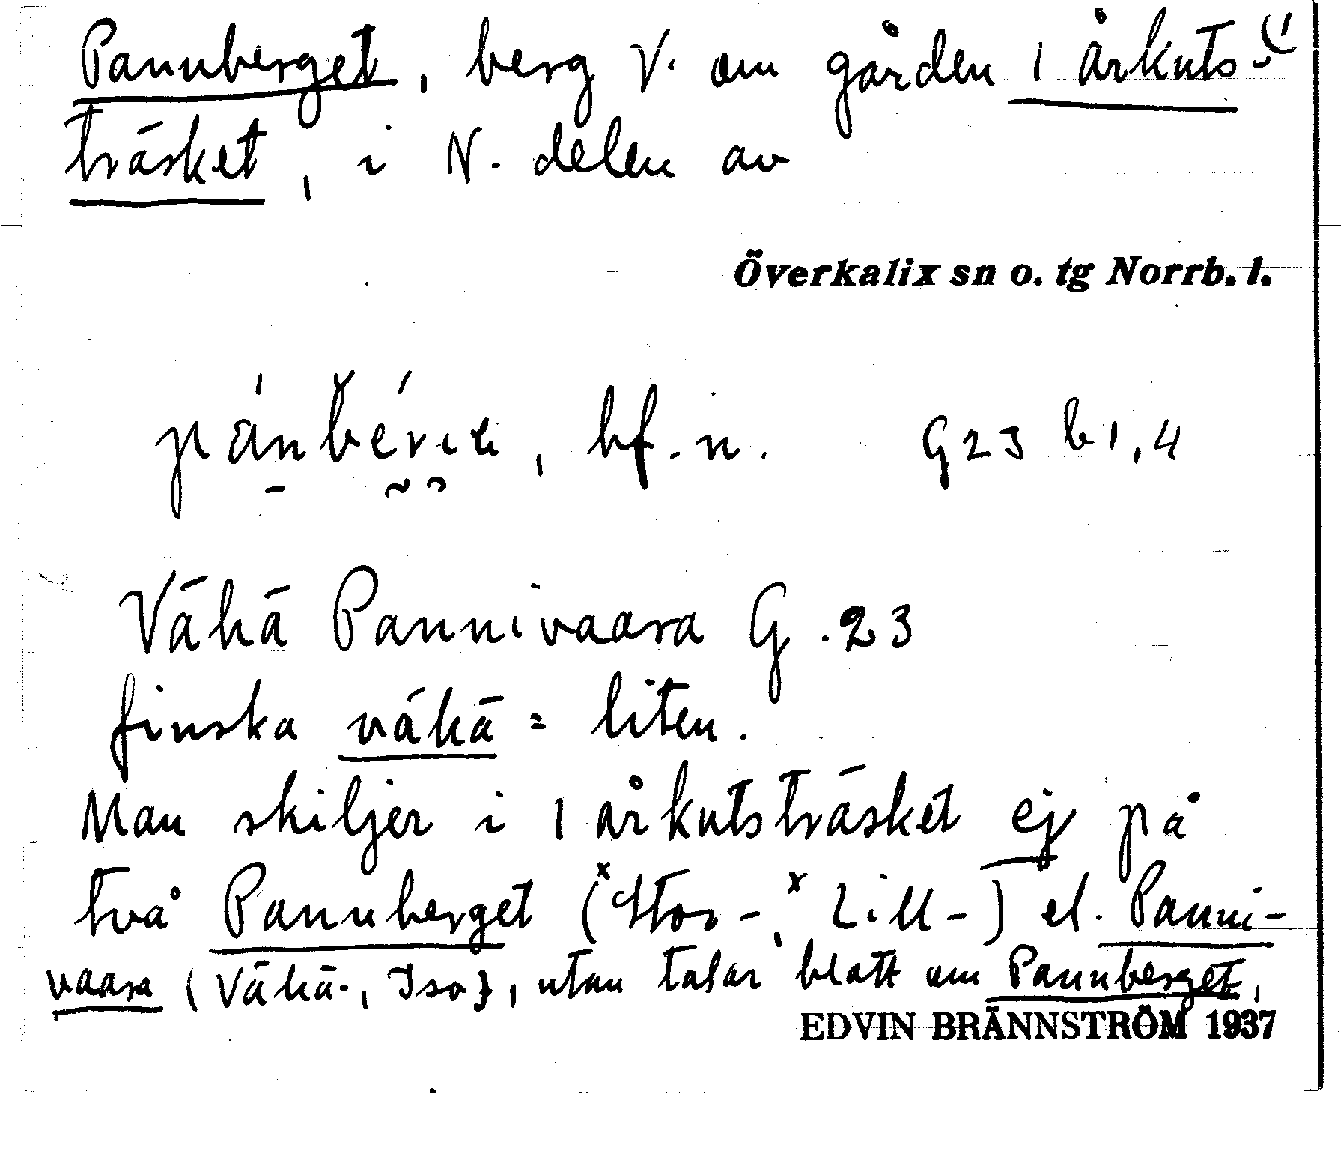 Pannberget, berg V. om gården 1 årkuts-
träsket, i N. delen av
Överkalix sn o. tg Norrb. l.
bf. n. G 23 b 1, 4
Vähä Pannivaara G. 23
finska vähä = liten.
Man skiljer i 1 årkutsträsket ej på
två Pannberget (ˣStor-, ˣLill-) el. Panni-
vaara (Vähä-, Iso), utan talar blott om Pannberget,
EDVIN BRÄNNSTRÖM 1937